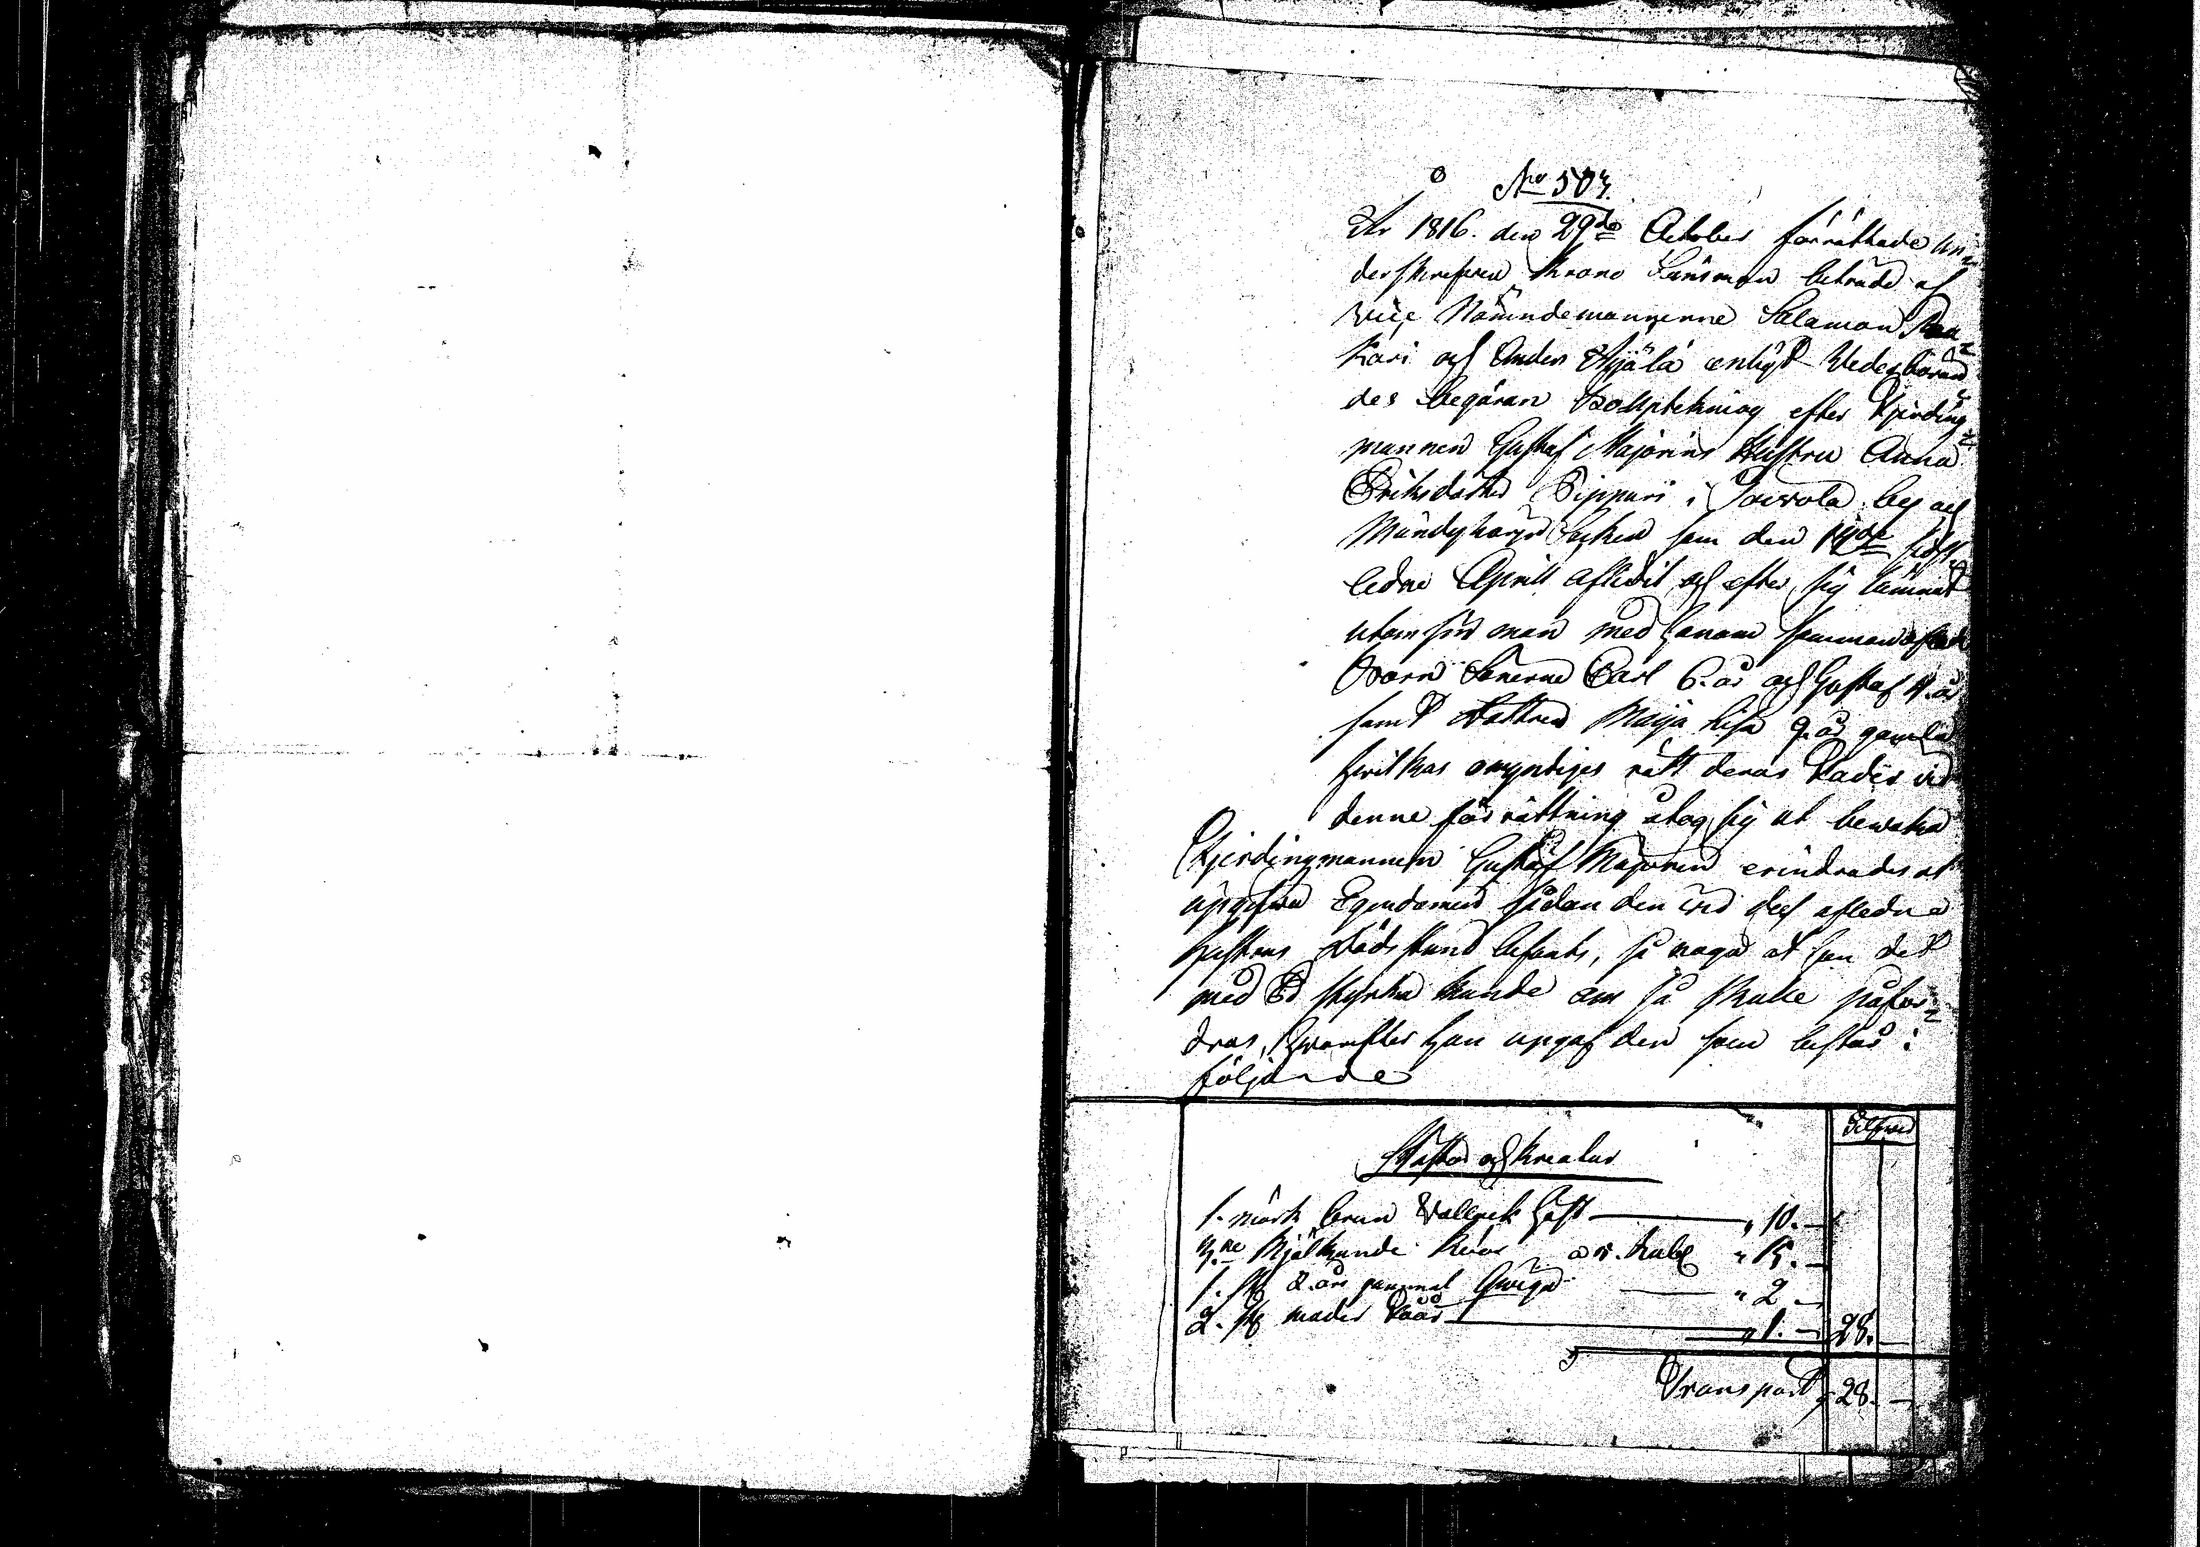 No 503.
År 1816. den 29de October förrättade un=
derskrefven Krono Länsman biträde af
vice Nämndemännerne Salamon
kari och Anders Äijälä enligt Vederböran
des begäran Bouptekning efter Fjerding=
mannen Gustaf Majorins Hustru Anna
Eriksdotter Pippuri i Toivola by och
Mändyharju Sochen som den sist
ledne April aflidit och efter sig lämnat
utom sin man med honom sammanaflade
Barn Sönerne Carl 6. år och Gustaf 4. år
samt Dottren Maija Lisa 9. år gamla
hvilkas omyndiges rätt deras Fader vid
denne förrättning åtog sig at bevaka
Fjerdingmannen Gustaf Majorin erindrades at
upgifva Egendomen sådan den vid des afledne
Hustrus Dödsstund befants, så noga at han det
med Ed styrka kunde om så skulle påfor=
dras, hvarefter han upgaf den som bestås i
följande
Silfver
Hästar och Kreatur
1. mörk brun Vallack häst " 10. —
3.ne Mjölkande Kour a 5. Rubel " 15. —
1. st. 2. års gammal Qviga " 2. —
2. st. moder Fåår " 1. — 28. —
Transport 28. —